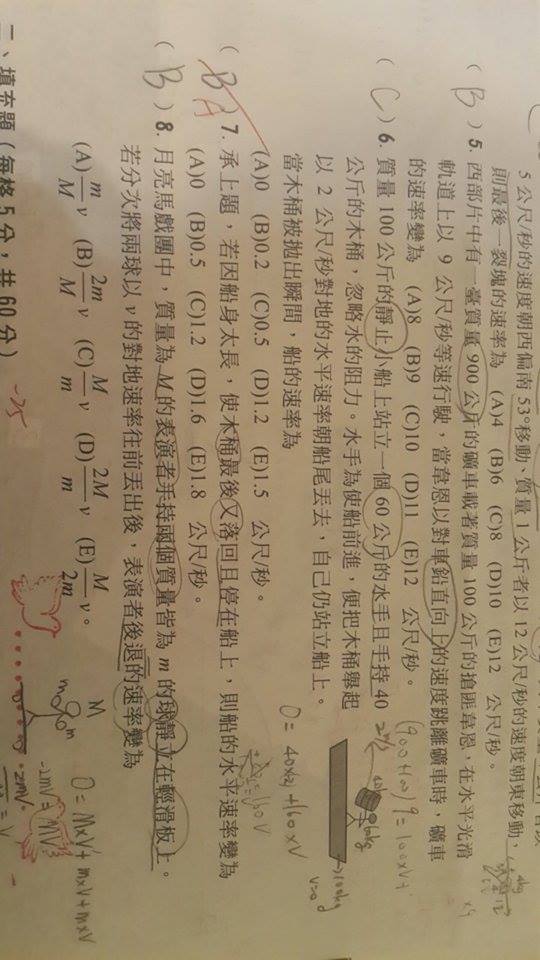 5 公尺/秒的速度朝西偏南 53°移動、質量 1 公斤者以 12 公尺/秒的速度朝東移動,
則最後一裂塊的速率為 (A)4 (B)6 (C)8 (D)10 (E)12 公尺/秒。
( B ) 5. 西部片中有一臺質量 900 公斤的礦車載著質量 100 公斤的搶匪韋恩,在水平光滑
軌道上以 9 公尺/秒等速行駛,當韋恩以對車鉛直向上的速度跳離礦車時,礦車
的速率變為 (A)8 (B)9 (C)10 (D)11 (E)12 公尺/秒。
(900+100)9=100xV+
( C ) 6. 質量 100 公斤的靜止小船上站立一個 60 公斤的水手且手持 40
公斤的木桶,忽略水的阻力。水手為使船前進,便把木桶舉起
以 2 公尺/秒對地的水平速率朝船尾丟去,自己仍站立船上。
當木桶被拋出瞬間,船的速率為
2m/s
40kg
60kg
100kg
V=0
0=40x2+160xV
(A)0 (B)0.2 (C)0.5 (D)1.2 (E)1.5 公尺/秒。
( B A ) 7. 承上題,若因船身太長,使木桶最後又落回且停在船上,則船的水平速率變為
(A)0 (B)0.5 (C)1.2 (D)1.6 (E)1.8 公尺/秒。
( B ) 8. 月亮馬戲團中,質量為 M 的表演者手持兩個質量皆為 m 的球靜立在輕滑板上。
若分次將兩球以 v 的對地速率往前丟出後,表演者後退的速率變為
(A) m/M v (B) 2m/M v (C) M/m v (D) 2M/m v (E) M/2m v。
M
m m
0=MxV'+mxV+mxV
-2mV=MV'
-25
二、填充題(每格 5 分,共 60 分)